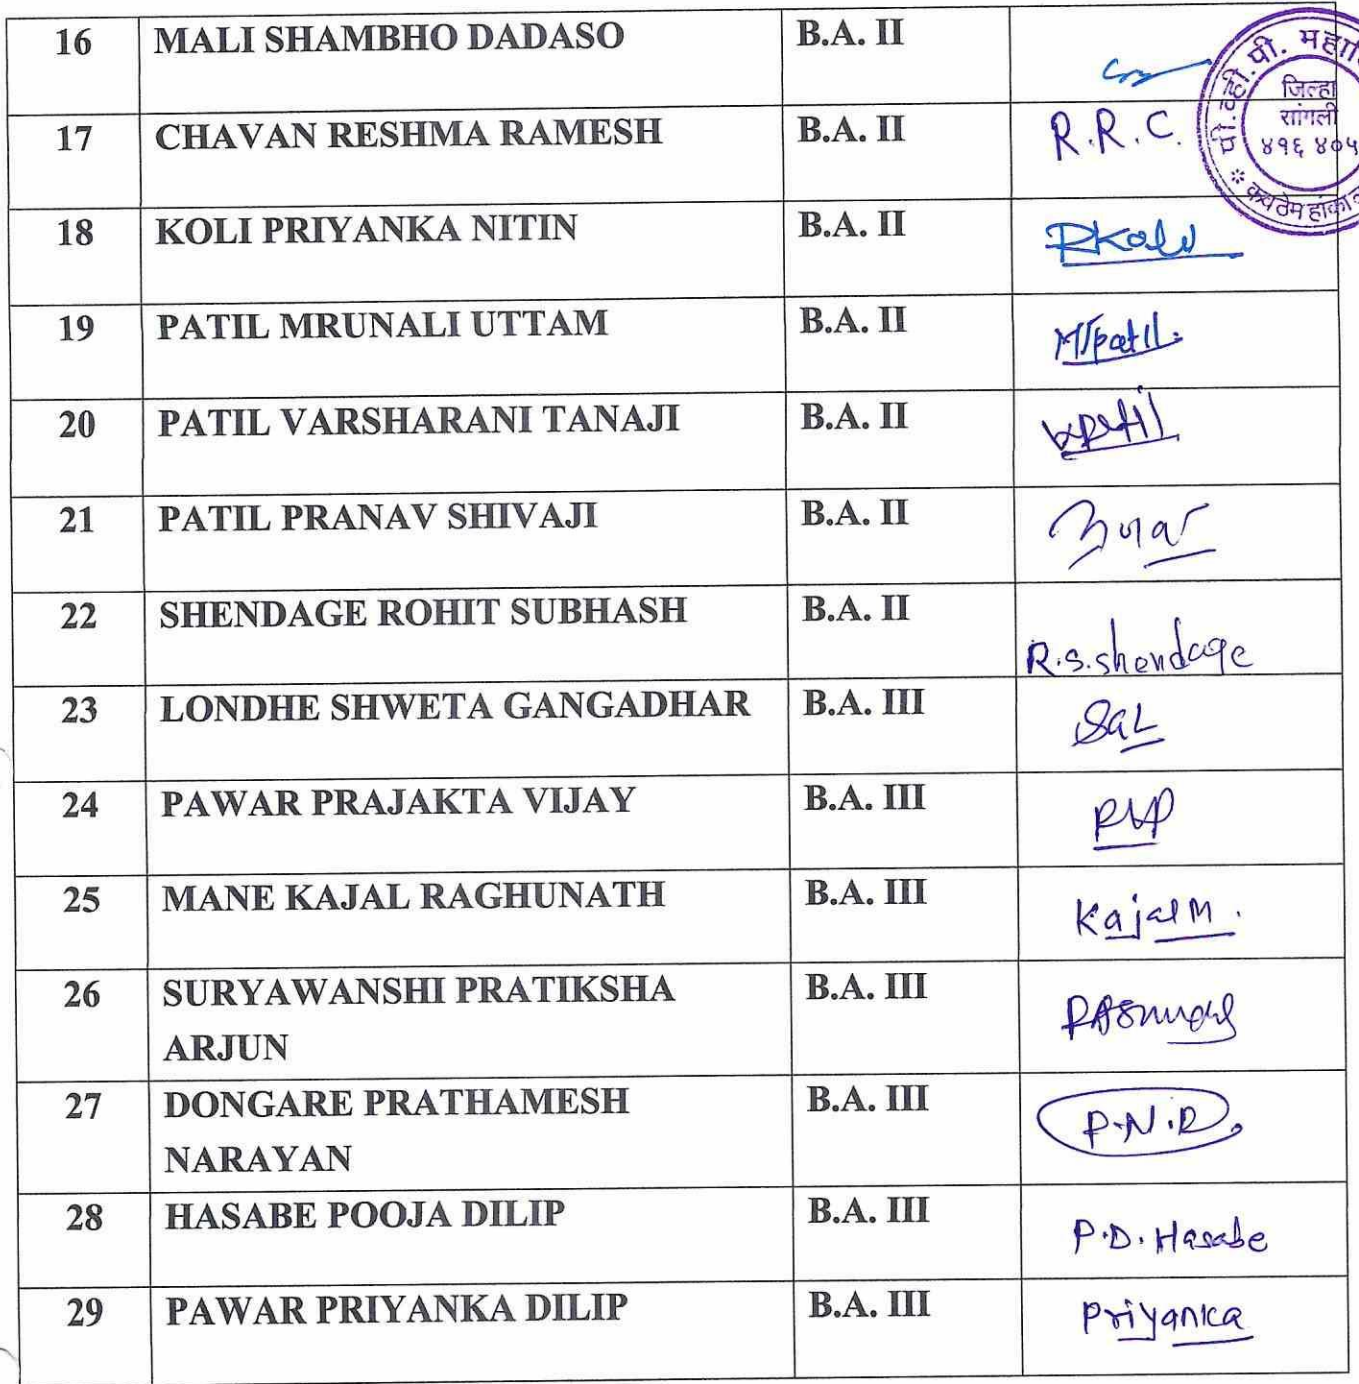 16 MALI SHAMBHO DADASO B.A. II
जिल्हा
सांगली
४१६ ४०५
17 CHAVAN RESHMA RAMESH B.A. II R.R.C.
18 KOLI PRIYANKA NITIN B.A. II PKoli
19 PATIL MRUNALI UTTAM B.A. II MUpatil.
20 PATIL VARSHARANI TANAJI B.A. II
21 PATIL PRANAV SHIVAJI B.A. II
22 SHENDAGE ROHIT SUBHASH B.A. II R.S.shendage
23 LONDHE SHWETA GANGADHAR B.A. III SGL
24 PAWAR PRAJAKTA VIJAY B.A. III PVP
25 MANE KAJAL RAGHUNATH B.A. III Kajal M.
26 SURYAWANSHI PRATIKSHA B.A. III
ARJUN
27 DONGARE PRATHAMESH B.A. III P.N.D.
NARAYAN
28 HASABE POOJA DILIP B.A. III P.D. Hasabe
29 PAWAR PRIYANKA DILIP B.A. III Priyanka